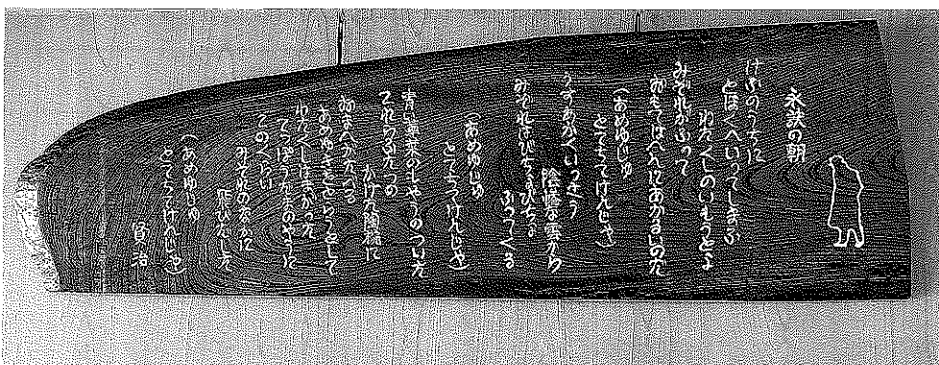 永訣の朝
けふのうちに
とほくへいってしまふ
わたくしのいもうとよ
みぞれがふって
おもてはへんにあかるいのだ
(あめゆじゅ
とてちてけんじゃ)
うすあかくいっさう
陰惨な雲から
みぞれはびちょびちょ
ふってくる
(あめゆじゅ
とてちてけんじゃ)
青い蓴菜のもやうのついた
これらふたつの
かけた陶椀に
おまへがたべる
あめゆきをとらうとして
わたくしはまがった
てっぽうだまのやうに
このくらい
みぞれのなかに
飛びだした
(あめゆじゅ
とてちてけんじゃ)
賢治